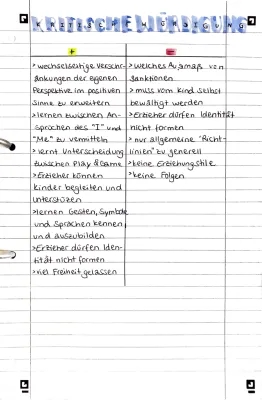 KRITISCHE WÜRDIGUNG
+
>wechselseitige Verschr-
änkungen der eigenen
Perspektive im positiven
Sinne zu erweitern
>lernen zwischen An-
sprüchen des "I" und
"Me" zu vermitteln
>lernt Unterscheidung
zwischen Play & Game
>Erzieher können
Kinder begleiten und
unterstüzen
>lernen Gesten, Symbole
und Sprachen kennen
und auszubilden
>Erzieher dürfen Iden-
tität nicht formen
>viel Freiheit gelassen
-
>welches Ausmaß von
Sanktionen
>muss vom Kind selbst
bewältigt werden
>Erzieher dürfen Identität
nicht formen
>nur allgemeine "Richt-
linien" zu generell
>keine Erziehungsstile
>keine Folgen